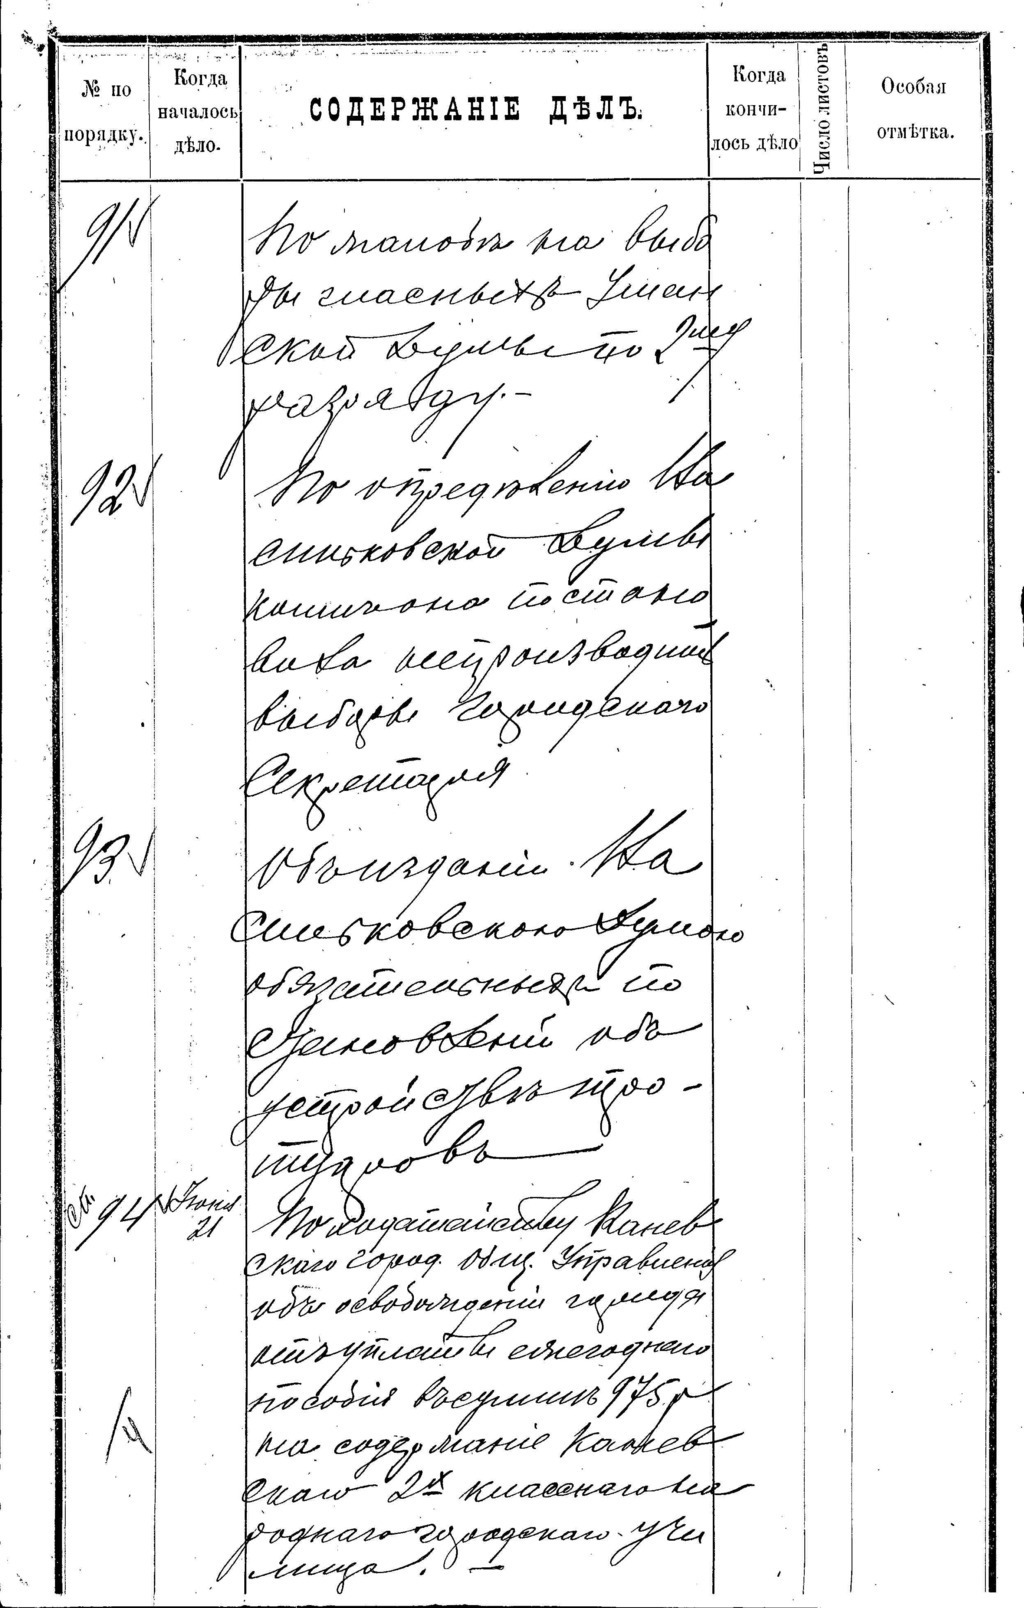 № по порядку.
Когда началось дѣло.
СОДЕРЖАНІЕ ДѢЛЪ.
Когда кончи-
лось дѣло
Число листовъ
Особая отмѣтка.
91
По жалобѣ на выбо
ры гласныхъ Уман
ской Думы по 2му
разряду.-
92
По опредѣленію На
ковской Думы
постано
вила непроизводить
выборы Городскаго
Секретаря
93.
Объ изданіи На
ковскою Думою
обязательныхъ по
становленій объ
устройствѣ тро-
туаровъ
94 Іюня
21
По ходатайству Канев
скаго город. общ. Управленія
объ освобожденіи города
отъ уплаты ежегоднаго
пособія въ суммѣ 975 р
на содержаніе Канев
скаго 2х класснаго на
роднаго городскаго учи
лища. —